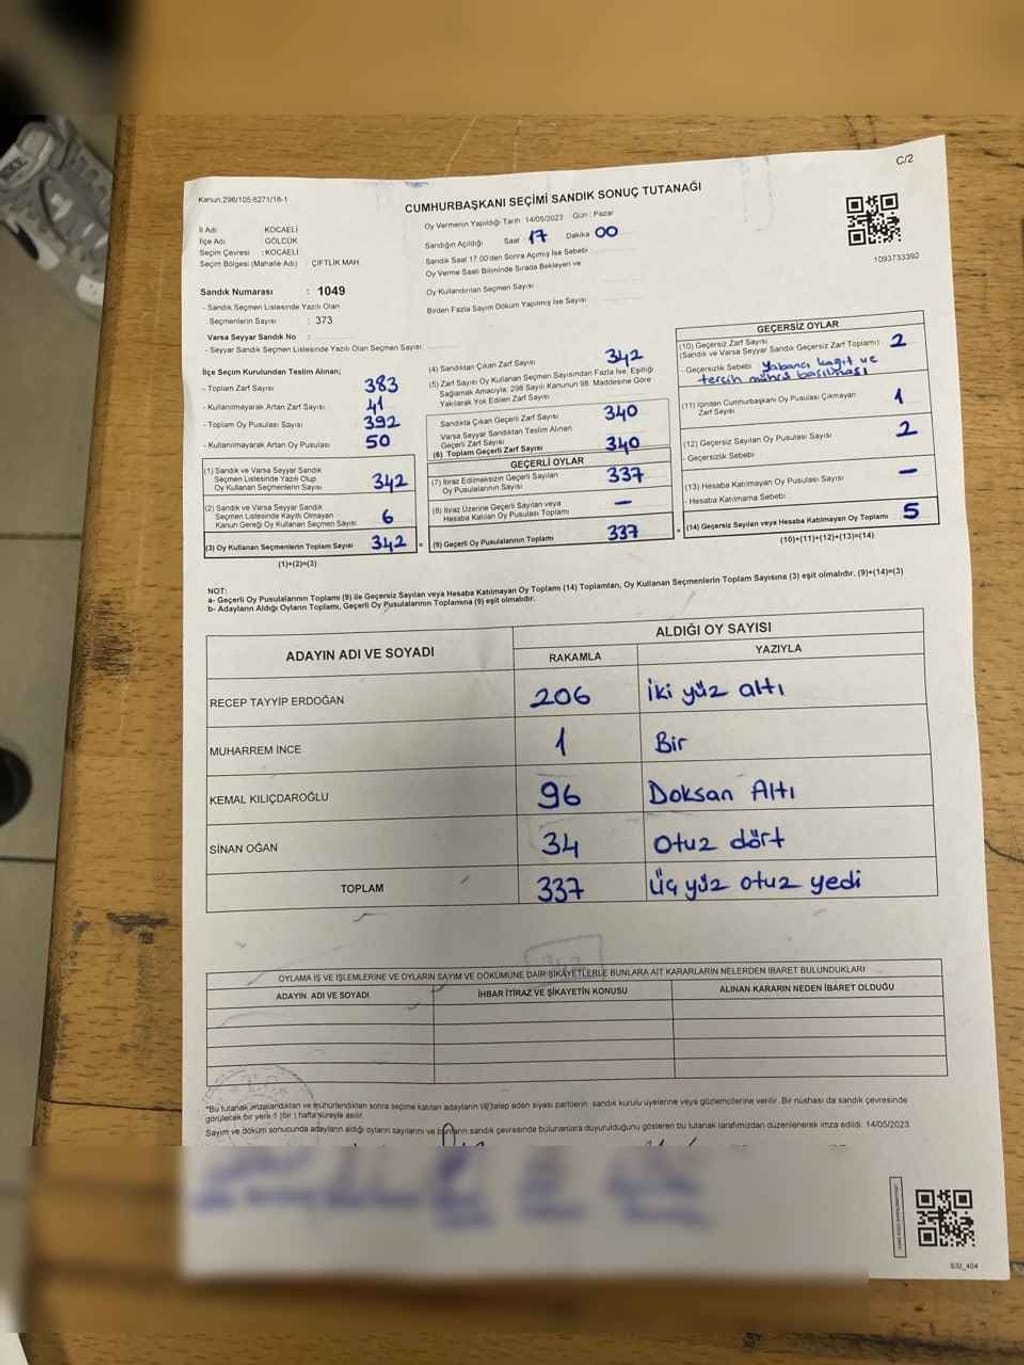 C/2
Kanun 298/105.6271/18-1
CUMHURBAŞKANI SEÇİMİ SANDIK SONUÇ TUTANAĞI
İl Adı KOCAELİ
İlçe Adı GÖLCÜK
Seçim Çevresi : KOCAELİ
Seçim Bölgesi (Mahalle Adı) : ÇİFTLİK MAH
Sandık Numarası : 1049
- Sandık Seçmen Listesinde Yazılı Olan
Seçmenlerin Sayısı : 373
Varsa Seyyar Sandık No
- Seyyar Sandık Seçmen Listesinde Yazılı Olan Seçmen Sayısı
Oy Vermenin Yapıldığı Tarih : 14/05/2023 Gün : Pazar
Sandığın Açıldığı Saat : 17 Dakika 00
Sandık Saat 17.00'den Sonra Açılmış İse Sebebi
Oy Verme Saati Bitiminde Sırada Bekleyen ve
Oy Kullandırılan Seçmen Sayısı
Birden Fazla Sayım Döküm Yapılmış İse Sayısı
1093733392
İlçe Seçim Kurulundan Teslim Alınan;
- Toplam Zarf Sayısı 383
- Kullanılmayarak Artan Zarf Sayısı 41
- Toplam Oy Pusulası Sayısı 392
- Kullanılmayarak Artan Oy Pusulası 50
(1) Sandık ve Varsa Seyyar Sandık
Seçmen Listesinde Yazılı Olup
Oy Kullanan Seçmenlerin Sayısı 342
(2) Sandık ve Varsa Seyyar Sandık
Seçmen Listesinde Kayıtlı Olmayan
Kanun Gereği Oy Kullanan Seçmen Sayısı 6
(3) Oy Kullanan Seçmenlerin Toplam Sayısı 342
(1)+(2)=(3)
(4) Sandıktan Çıkan Zarf Sayısı 342
(5) Zarf Sayısı Oy Kullanan Seçmen Sayısından Fazla İse, Eşitliği
Sağlamak Amacıyla; 298 Sayılı Kanunun 98. Maddesine Göre
Yakılarak Yok Edilen Zarf Sayısı
Sandıkta Çıkan Geçerli Zarf Sayısı 340
Varsa Seyyar Sandıktan Teslim Alınan
Geçerli Zarf Sayısı
(6) Toplam Geçerli Zarf Sayısı 340
GEÇERLİ OYLAR
(7) İtiraz Edilmeksizin Geçerli Sayılan
Oy Pusulalarının Sayısı 337
(8) İtiraz Üzerine Geçerli Sayılan veya
Hesaba Katılan Oy Pusulası Toplamı –
= (9) Geçerli Oy Pusulalarının Toplamı 337
GEÇERSİZ OYLAR
(10) Geçersiz Zarf Sayısı
(Sandık ve Varsa Seyyar Sandık Geçersiz Zarf Toplamı) 2
- Geçersizlik Sebebi Yabancı kağıt ve
tercih mührü basılması
(11) İçinden Cumhurbaşkanı Oy Pusulası Çıkmayan
Zarf Sayısı 1
(12) Geçersiz Sayılan Oy Pusulası Sayısı 2
- Geçersizlik Sebebi
(13) Hesaba Katılmayan Oy Pusulası Sayısı –
- Hesaba Katılmama Sebebi
+ (14) Geçersiz Sayılan veya Hesaba Katılmayan Oy Toplamı 5
(10)+(11)+(12)+(13)=(14)
NOT:
a- Geçerli Oy Pusulalarının Toplamı (9) ile Geçersiz Sayılan veya Hesaba Katılmayan Oy Toplamı (14) Toplamları, Oy Kullanan Seçmenlerin Toplam Sayısına (3) eşit olmalıdır. (9)+(14)=(3)
b- Adayların Aldığı Oyların Toplamı, Geçerli Oy Pusulalarının Toplamına (9) eşit olmalıdır.
ADAYIN ADI VE SOYADI ALDIĞI OY SAYISI
RAKAMLA YAZIYLA
RECEP TAYYİP ERDOĞAN 206 İki yüz altı
MUHARREM İNCE 1 Bir
KEMAL KILIÇDAROĞLU 96 Doksan Altı
SİNAN OĞAN 34 Otuz dört
TOPLAM 337 Üç yüz otuz yedi
OYLAMA İŞ VE İŞLEMLERİNE VE OYLARIN SAYIM VE DÖKÜMÜNE DAİR ŞİKAYETLERLE BUNLARA AİT KARARLARIN NELERDEN İBARET BULUNDUKLARI
ADAYIN ADI VE SOYADI İHBAR İTİRAZ VE ŞİKAYETİN KONUSU ALINAN KARARIN NEDEN İBARET OLDUĞU
*Bu tutanak imzalandıktan ve mühürlendikten sonra seçime katılan adayların ve talep eden siyasi partilerin sandık kurulu üyelerine veya gözlemcilerine verilir. Bir nüshası da sandık çevresinde
görülecek bir yere 1 (bir) hafta süreyle asılır.
Sayım ve döküm sonucunda adayların aldığı oyların sayılarını ve bunların sandık çevresinde bulunanlara duyurulduğunu gösteren bu tutanak tarafımızdan düzenlenerek imza edildi. 14/05/2023